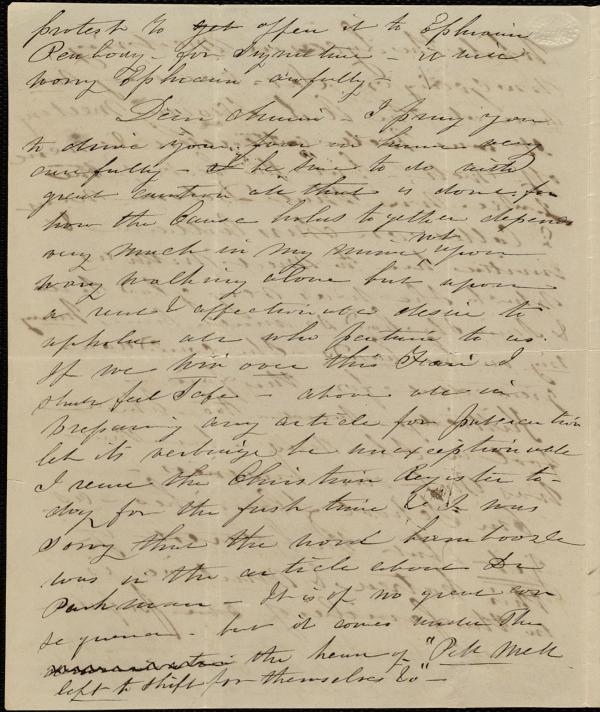 protest to get offer it to Ephraim
Peabody for signature - it will
worry Ephraim - awfully -
Dear Anna I pray you
to drive your four in hand very
carefully - be sure to do with
great caution all that is done, for
how the Cause holds together depends
very much in my mind not upon
wary walking alone but upon
a real & affectionate desire to
uphold all who pertain to us.
If we live over this Fair I
shall feel safe - above all in
preparing any article for publication
let its verbiage be unexceptionable
I read the Christian Register to-
day for the first time & was
sorry that the word bamboozle
was in the article about Dr
Parkman - It is of no great con
sequence - but it comes under the
the head of "Pell Mell
left to shift for themselves &c" -